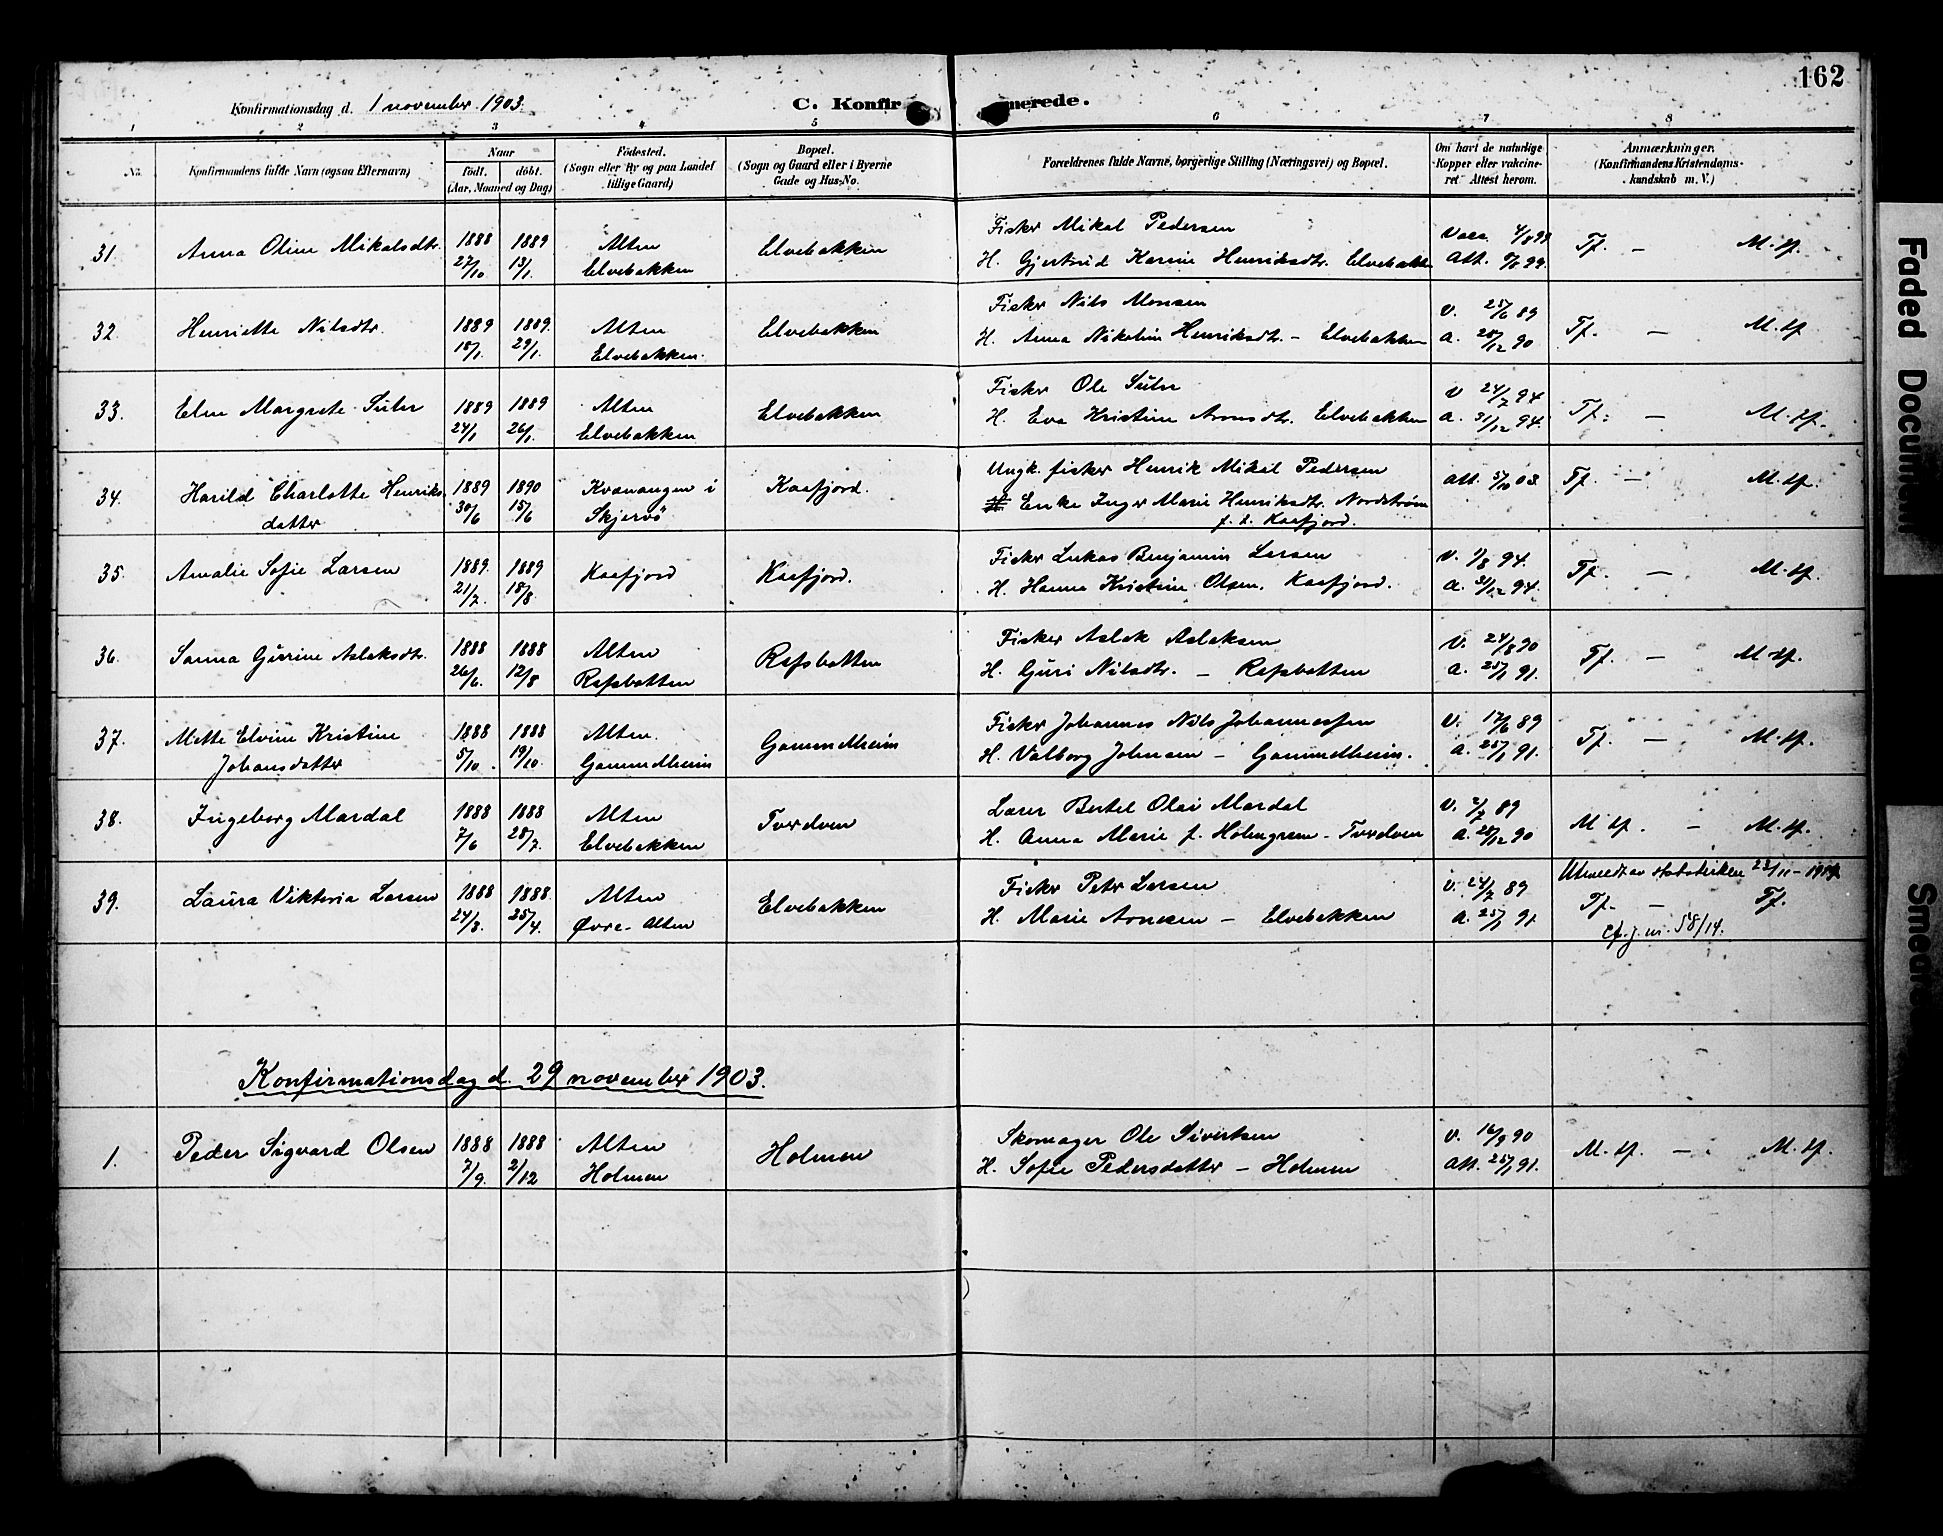 162
Konfirmationsdag d. 1 november 1903.
C. Konfirmerede.
1 2 3 4 5 6 7 8
No.
Konfirmandens fulde Navn (ogsaa Efternavn)
Naar
født. døbt.
(Aar, Maaned og Dag)
Fødested.
(Sogn eller By og paa Landet
tillige Gaard)
Bopæl.
(Sogn og Gaard eller i Byerne
Gade og Hus-No.
Forældrenes fulde Navne, borgerlige Stilling (Næringsvei) og Bopæl.
Om havt de naturlige
Kopper eller vakcine-
ret Attest herom.
Anmærkninger.
(Konfirmandens Kristendoms-
kundskab m. V.)
31. Anna Oline Mikalsdtr. 1888 27/10 1889 13/1. Alten Elvebakken Elvebakken
Fisker Mikal Pedersen
H. Gjertrud Karine Henriksdtr. Elvebakken
Tf. — M. tf.
32. Henriette Nilsdtr. 1889 18/1. 1889. 29/1. Alten Elvebakken. Elvebakken
Fisker Nils Monsen
H. Anna Nikoline Henriksdtr. — Elvebakken
V. 25/6 89
A. 28/12 90
Tf. — M. tf
33. Elen Margrete 1889 24/1 1889 26/1. Alten Elvebakken Elvebakken
Fisker Ole
H. Eva Kristine Aronsdtr. Elvebakken
V 24/7 94
A. 31/12 94.
Tf. — M. tf.
34. Harild Charlotte Henriks
datter 1889 30/6 1890 15/6 Kvænangen i Skjervø Kaafjord.
Ungk. fisker Henrik Mikal Pedersen
Enke Inger Marie Henriksdtr. Nordstrøm
f. t. Kaafjord.
Att. 5/10 03.
Tf. — M. tf.
35. Amalie Sofie Larsen 1889. 21/7. 1889 18/8 Kaafjord Kaafjord.
Fisker Lukas Benjamin Larsen
H. Hanna Kristine Olsen, Kaafjord.
V. 1/8 94.
A. 31/12 94.
Tf. — M. tf.
36. Sanna Gurine Aslaksdtr. 1888 26/6. 1888 12/8 Alten Rafsbotten Rafsbotten
Fisker Aslak Aslaksen
H. Guri Nilsdtr. — Rafsbotten
V. 24/8 90
A. 25/1 91.
Tf. — M tf.
37. Mette Elvine Kristine
Johansdatter 1888 5/10. 1888 19/10 Alten. Gammelheim Gammelheim
Fisker Johannes Nils Johannessen
H. Valborg Johnsen — Gammelheim.
V. 17/6 89
A. 25/1 91.
Tf. — M. tf.
38. Ingeborg Mardal 1888 7/6 1888 28/7. Alten Elvebakken Tverelven
Lærer Bertel Olai Mardal
H. Anna Marie f. Holmgren — Tverelven
V. 2/7 89
A. 28/12 90
M tf. — M. tf.
39. Laura Viktoria Larsen 1888 24/3. 1888. 25/4. Alten Øvre-Alten Elvebakken
Fisker Petr Larsen
H. Marie Arnesen — Elvebakken
V. 24/7 89
A. 25/1 91.
Utmeldt av statskirken 23/11 - 1914.
Tf. — Tf.
Cf. j. nr. 58/14.
Konfirmationsdag d. 29 november 1903.
1. Peder Sigvard Olsen 1888 7/9. 1888 2/12 Alten Holmen Holmen
Skomager Ole Sivertsen
H. Sofie Pedersdatter — Holmen
V. 16/9 90
Att. 25/1 91.
M. tf. — M. tf.
Faded Document
Smeared